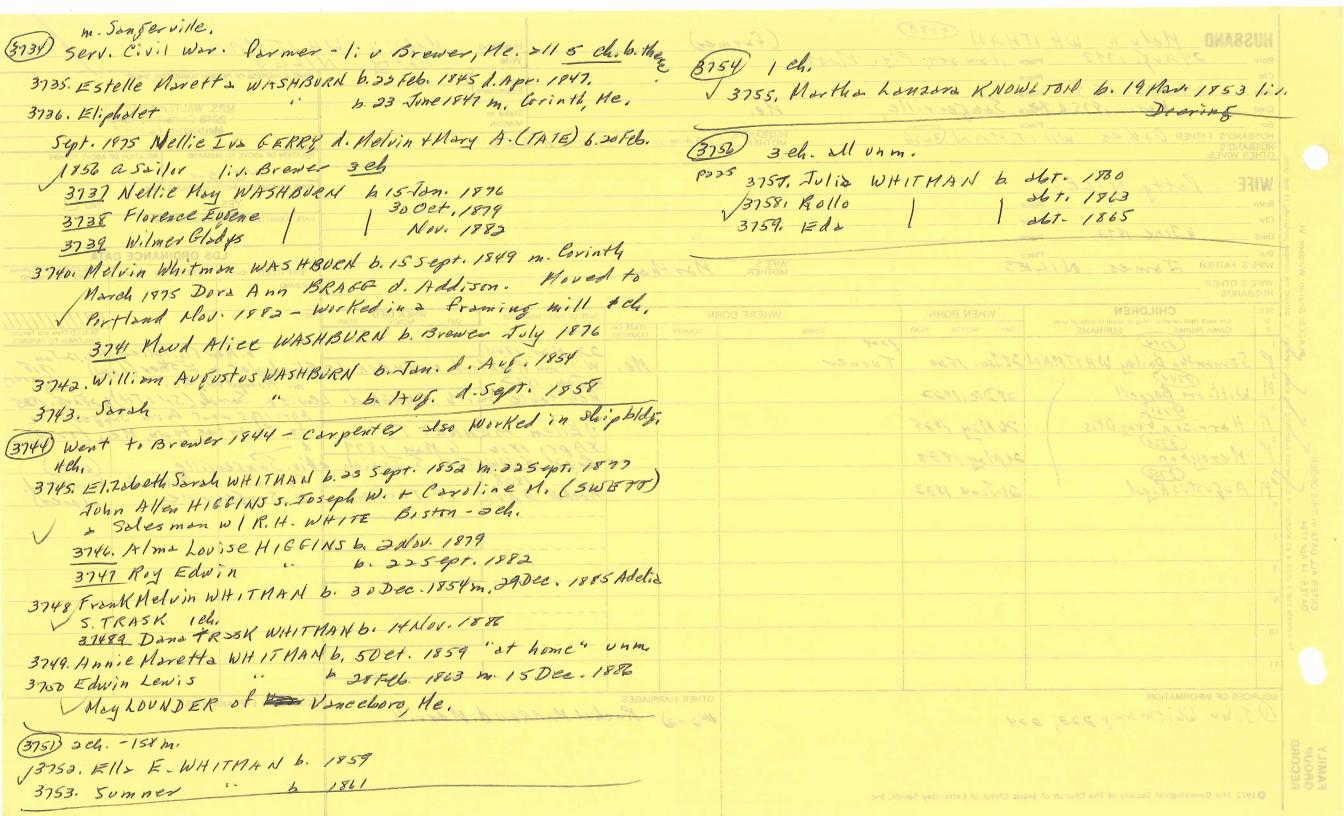 m. Sangerville.
3734 Serv. Civil War. Farmer - liv Brewer, Me. all 5 ch. b. there
3735. Estelle Maretta WASHBURN b. 22 Feb. 1845 d. Apr. 1847.
3736. Eliphalet " b. 23 June 1847 m. Corinth, Me.
Sept. 1875 Nellie Iva GERRY d. Melvin + Mary A. (TATE) b. 20 Feb.
1856 a Sailor liv. Brewer 3 ch
3737 Nellie May WASHBURN b. 15 Jan. 1876
3738 Florence Eugene 30 Oct. 1879
3739 Wilmer Gladys Nov. 1882
3740. Melvin Whitman WASHBURN b. 15 Sept. 1849 m. Corinth
March 1875 Dora Ann BRAGG d. Addison. Moved to
Portland Nov. 1882 - Worked in a framing mill ch.
3741 Maud Alice WASHBURN b. Brewer July 1876
3742. William Augustus WASHBURN b. Jan. d. Aug. 1854
3743. Sarah " b. Aug. d. Sept. 1858
3744 Went to Brewer 1844 - Carpenter also Worked in shipbldg.
4 ch.
3745. Elizabeth Sarah WHITMAN b. 23 Sept. 1852 m. 22 Sept. 1877
John Allen HIGGINS s. Joseph W. + Caroline M. (SWETT)
a Salesman w/ R.H. WHITE Boston - 2 ch.
3746. Alma Louise HIGGINS b. 2 Nov. 1879
3747 Roy Edwin " b. 22 Sept. 1882
3748 Frank Melvin WHITMAN b. 30 Dec. 1854 m. 29 Dec. 1885 Addie
S. TRASK 1 ch.
3748a Dana TRASK WHITMAN b. 14 Nov. 1886
3749. Annie Maretta WHITMAN b. 5 Oct. 1859 "at home" unm.
3750 Edwin Lewis " b 28 Feb. 1863 m. 15 Dec. 1886
May LOUNDER of Vanceboro, Me.
3751 2 ch. - 1st m.
3752. Ella E. WHITMAN b. 1859
3753. Sumner " b 1861
3754 1 ch.
3755. Martha Lanzara KNOWLTON b. 19 Mar. 1853 liv.
Deering
3756 3 ch. all unm.
P225 3757. Julia WHITMAN b. abt. 1860
3758. Rollo abt. 1863
3759. Eda abt. 1865